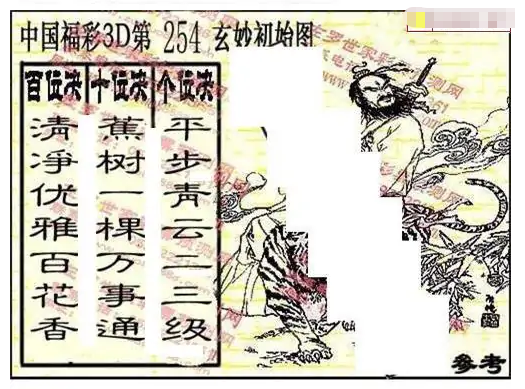 中国福彩3D第 254 玄妙初始图
百位决 十位决 个位决
清净优雅百花香
蕉树一棵万事通
平步青云二三级
参考